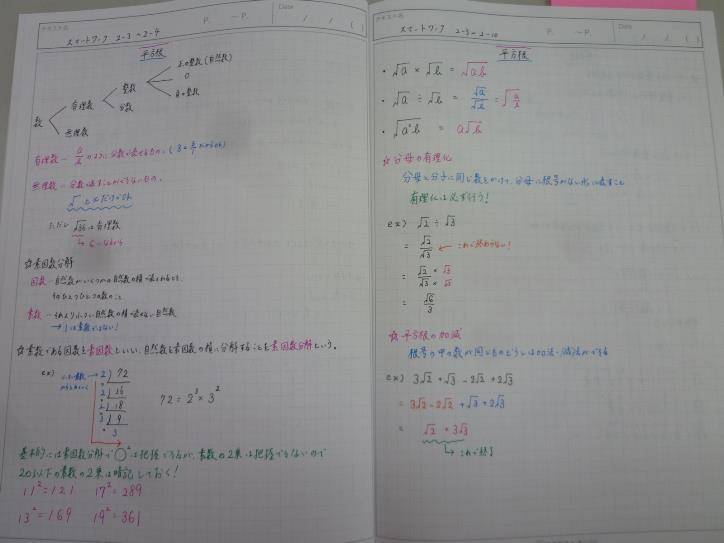 テキスト名
Date
スマートワーク 2-3〜2-4
P. 〜P. / / ( )
平方根
数
有理数
無理数
整数
分数
正の整数(自然数)
0
負の整数
有理数 — a/b のように分数で表せるもの。
無理数 — 分数で表すことができないもの。
√ とπだけでOK
ただし √36 は有理数
☆素因数分解
因数 — 自然数がいくつかの自然数の積で表されるとき、
そのひとつひとつの数のこと
素数 — それより小さい自然数の積で表せない自然数
→ 1は素数ではない!
☆素数である因数を素因数といい、自然数を素因数の積に分解することを素因数分解という。
ex)
2)72
2)36
2)18
3)9
3
72 = 2³ × 3²
基本的には素因数分解で○²は把握できるが、素数の2乗は把握できないので
20以下の素数の2乗は暗記しておく!
11² = 121 17² = 289
13² = 169 19² = 361
テキスト名
Date
スマートワーク 2-5〜2-10
P. 〜P. / / ( )
平方根
・√a × √b = √ab
・√a ÷ √b = √a/√b = √(a/b)
・√(a²b) = a√b
☆分母の有理化
分母と分子に同じ数をかけて、分母に根号がない形に表すこと
有理化は必ず行う!
ex) √2 ÷ √3
= √2/√3 ← これで終わらない!
= √2 × √3 / √3 × √3
= √6/3
☆平方根の加減
根号の中の数が同じものどうしは加法・減法ができる
ex) 3√2 + √3 - 2√2 + 2√3
= 3√2 - 2√2 + √3 + 2√3
= √2 + 3√3
→ これで終了